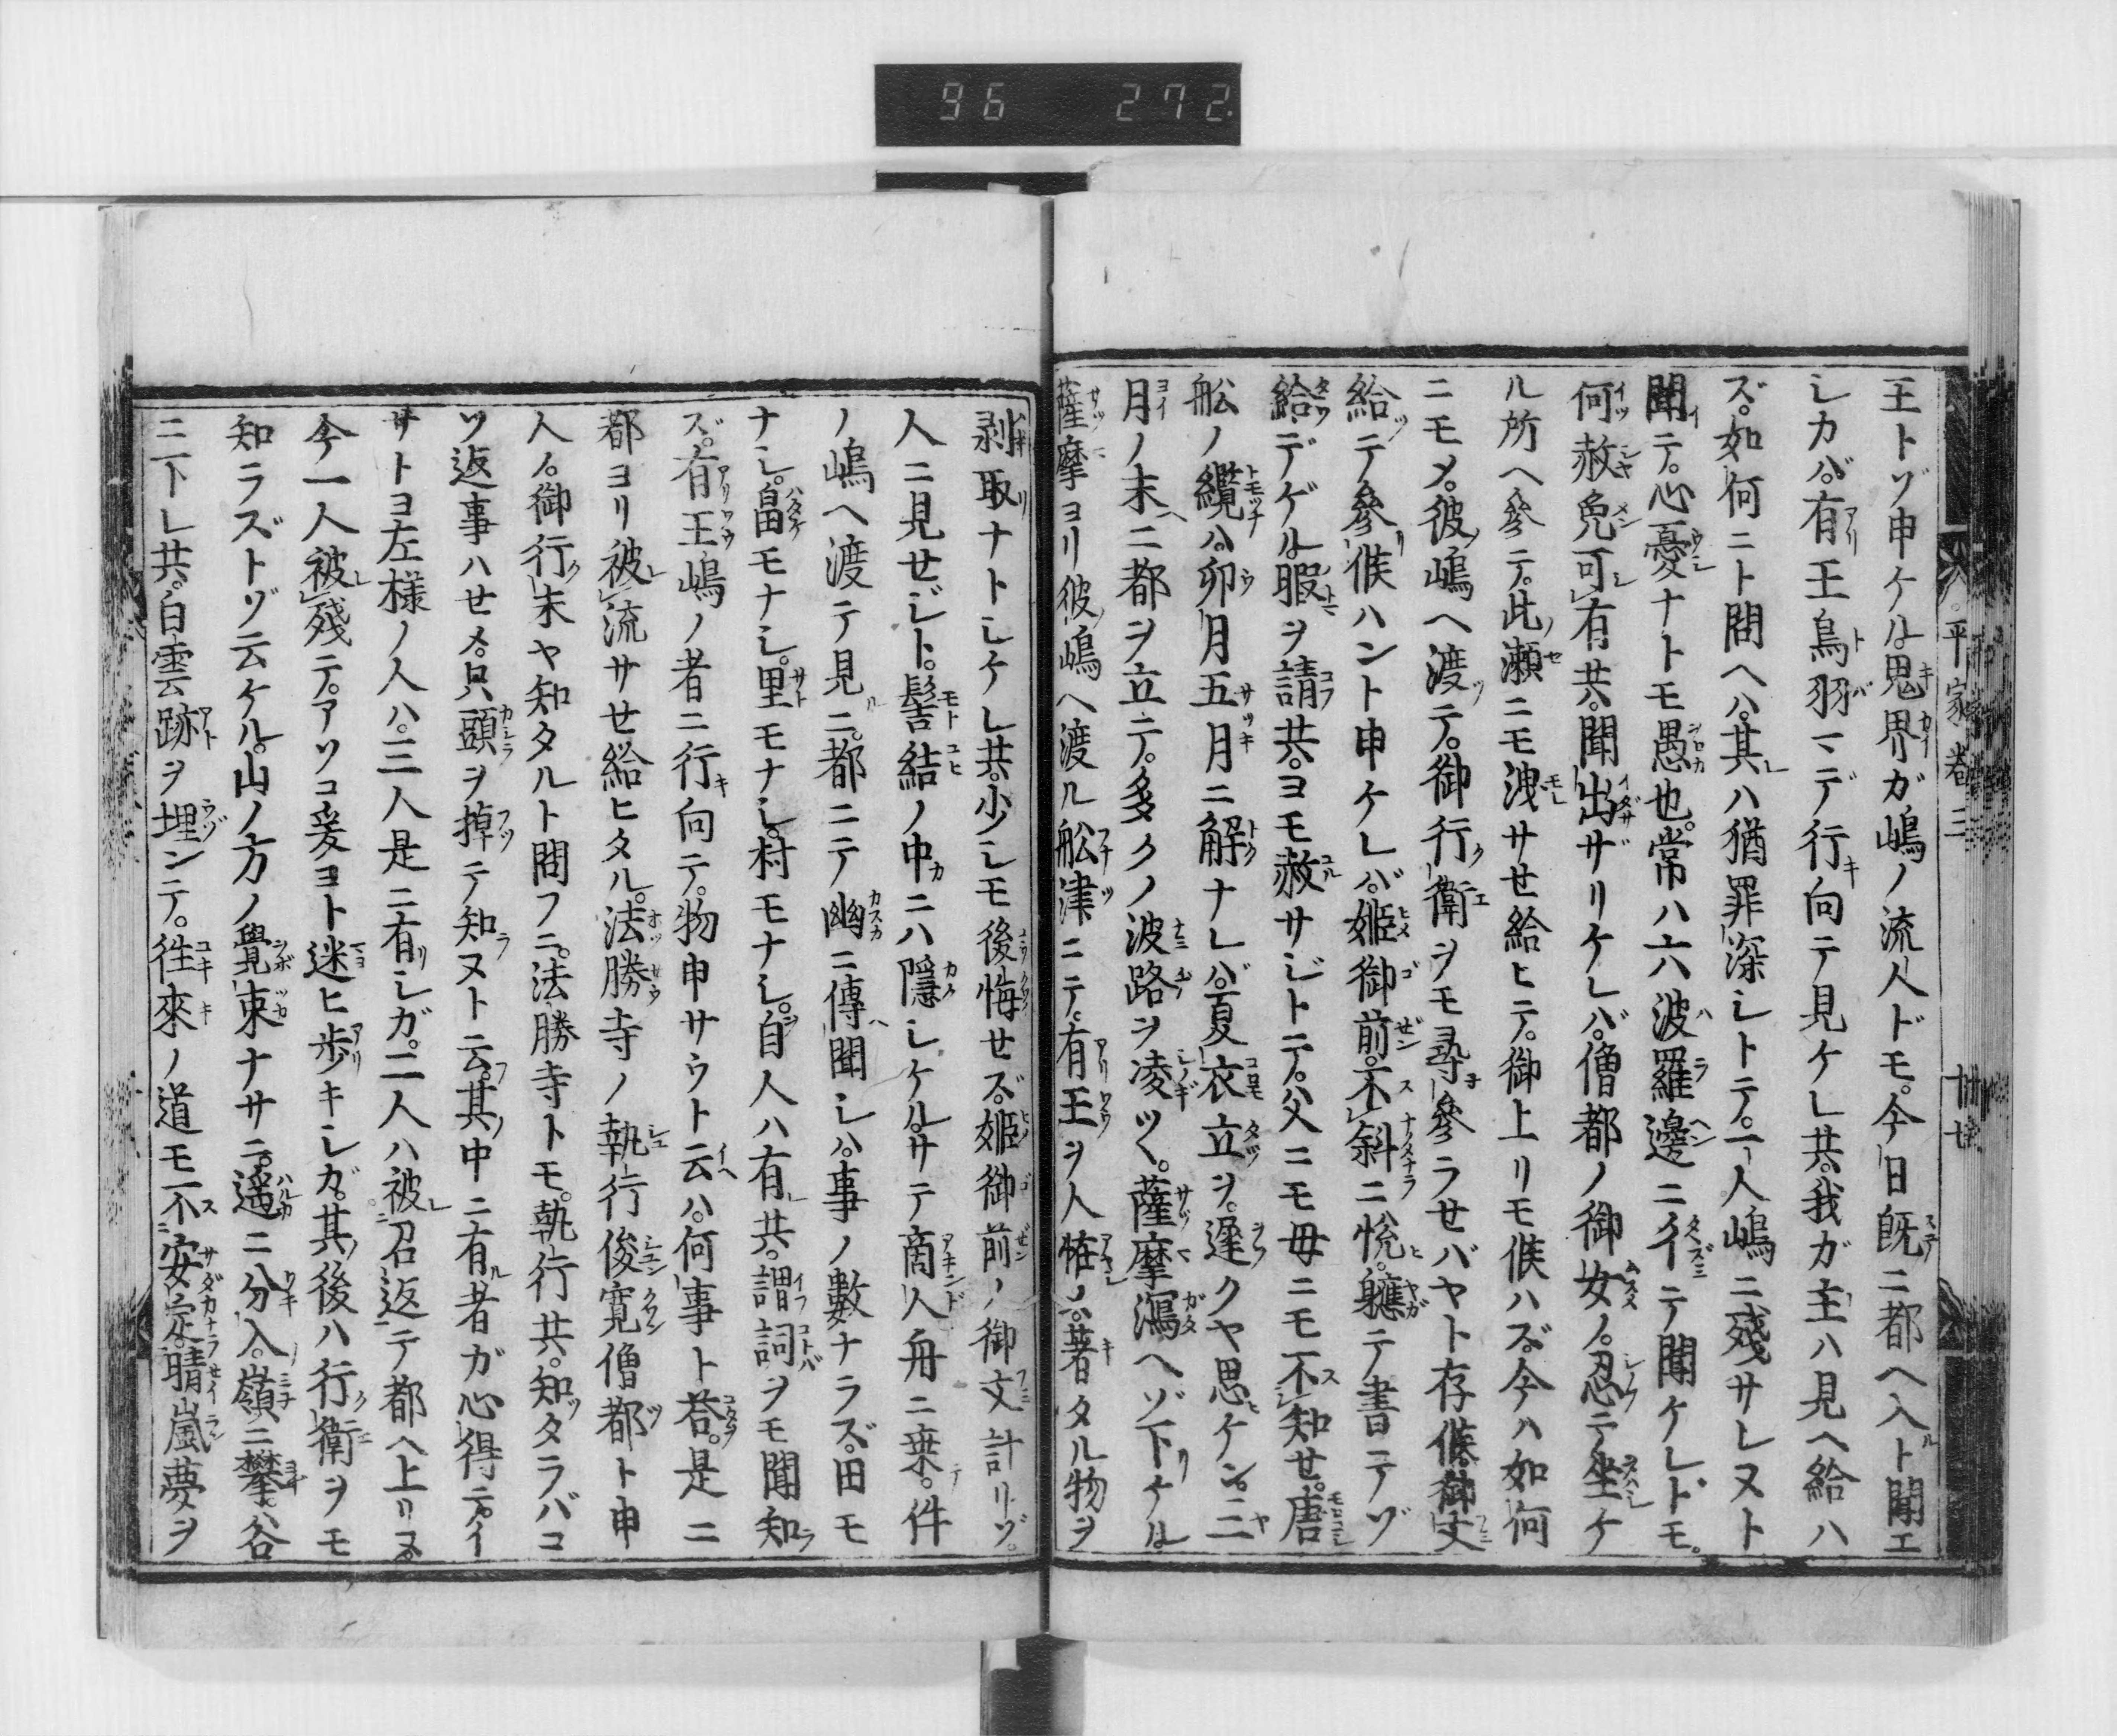 96 272
平家巻三
廿七
王トゾ申ケル鬼界ガ嶋ノ流人ドモ。今日既ニ都ヘ入ト聞エ
シカバ。有王鳥羽マデ行向テ見ケレ共。我ガ主ハ見ヘ給ハ
ズ。如何ニト問ヘハ。其ハ猶罪深シトテ。一人嶋ニ殘サレヌト
聞テ。心憂ナトモ愚也。常ハ六波羅邊ニイテ聞ケレトモ。
何赦免可有共。聞出ザリケレバ。僧都ノ御女ノ忍テ坐ケ
ル所ヘ參テ。此瀬ニモ洩サせ給ヒテ。御上リモ候ハズ。今ハ如何
ニモメ。彼嶋ヘ渡テ。御行衛ヲモ尋參ラせバヤト存候。御文
給テ參候ハント申ケレバ。姫御前。不斜ニ悦。軈テ書テゾ
給デゲル。暇ヲ請共。ヨモ赦サジトテ。父ニモ母ニモ不知せ。唐
舩ノ纜ハ。卯月五月ニ解ナレバ。夏衣立ヲ。遲クヤ思ケン。三
月ノ末ニ都ヲ立テ。多クノ波路ヲ凌ツヽ。薩摩瀉ヘゾ下ケル
薩摩ヨリ彼嶋ヘ渡ル舩津ニテ。有王ヲ人恠ノ。著タル物ヲ
剥取ナトシケレ共。少シモ後悔せズ。姫御前ノ御文計リゾ。
人ニ見せジト。髻結ノ中ニハ隱シケル。サテ商人舟ニ乗。件
ノ嶋ヘ渡テ見ニ。都ニテ幽ニ傳聞シハ。事ノ數ナラズ。田モ
ナシ。畠モナシ。里モナシ。村モナシ。自人ハ有共。謂詞ヲモ聞知
ズ。有王嶋ノ者ニ行向テ。物申サウト云ハ。何事ト荅。是ニ
都ヨリ被流サせ給ヒタル。法勝寺ノ執行俊寛僧都ト申
人ノ。御行末ヤ知タルト問フニ。法勝寺トモ。執行共。知タラバコ
ソ返事ハせメ。只頭ヲ掉テ知ヌト云。其中ニ有者ガ心得テ。イ
サトヨ左様ノ人ハ。三人是ニ有シガ。二人ハ被召返テ都ヘ上リヌ。
今一人被殘テ。アソコ爰ヨト迷ヒ歩キシガ。其後ハ行衛ヲモ
知ラズトゾ云ケル。山ノ方ノ覺束ナサニ。遥ニ分入。嶺ニ攀。谷
ニ下レ共。白雲跡ヲ埋ンテ。徃來ノ道モ不安定。晴嵐夢ヲ